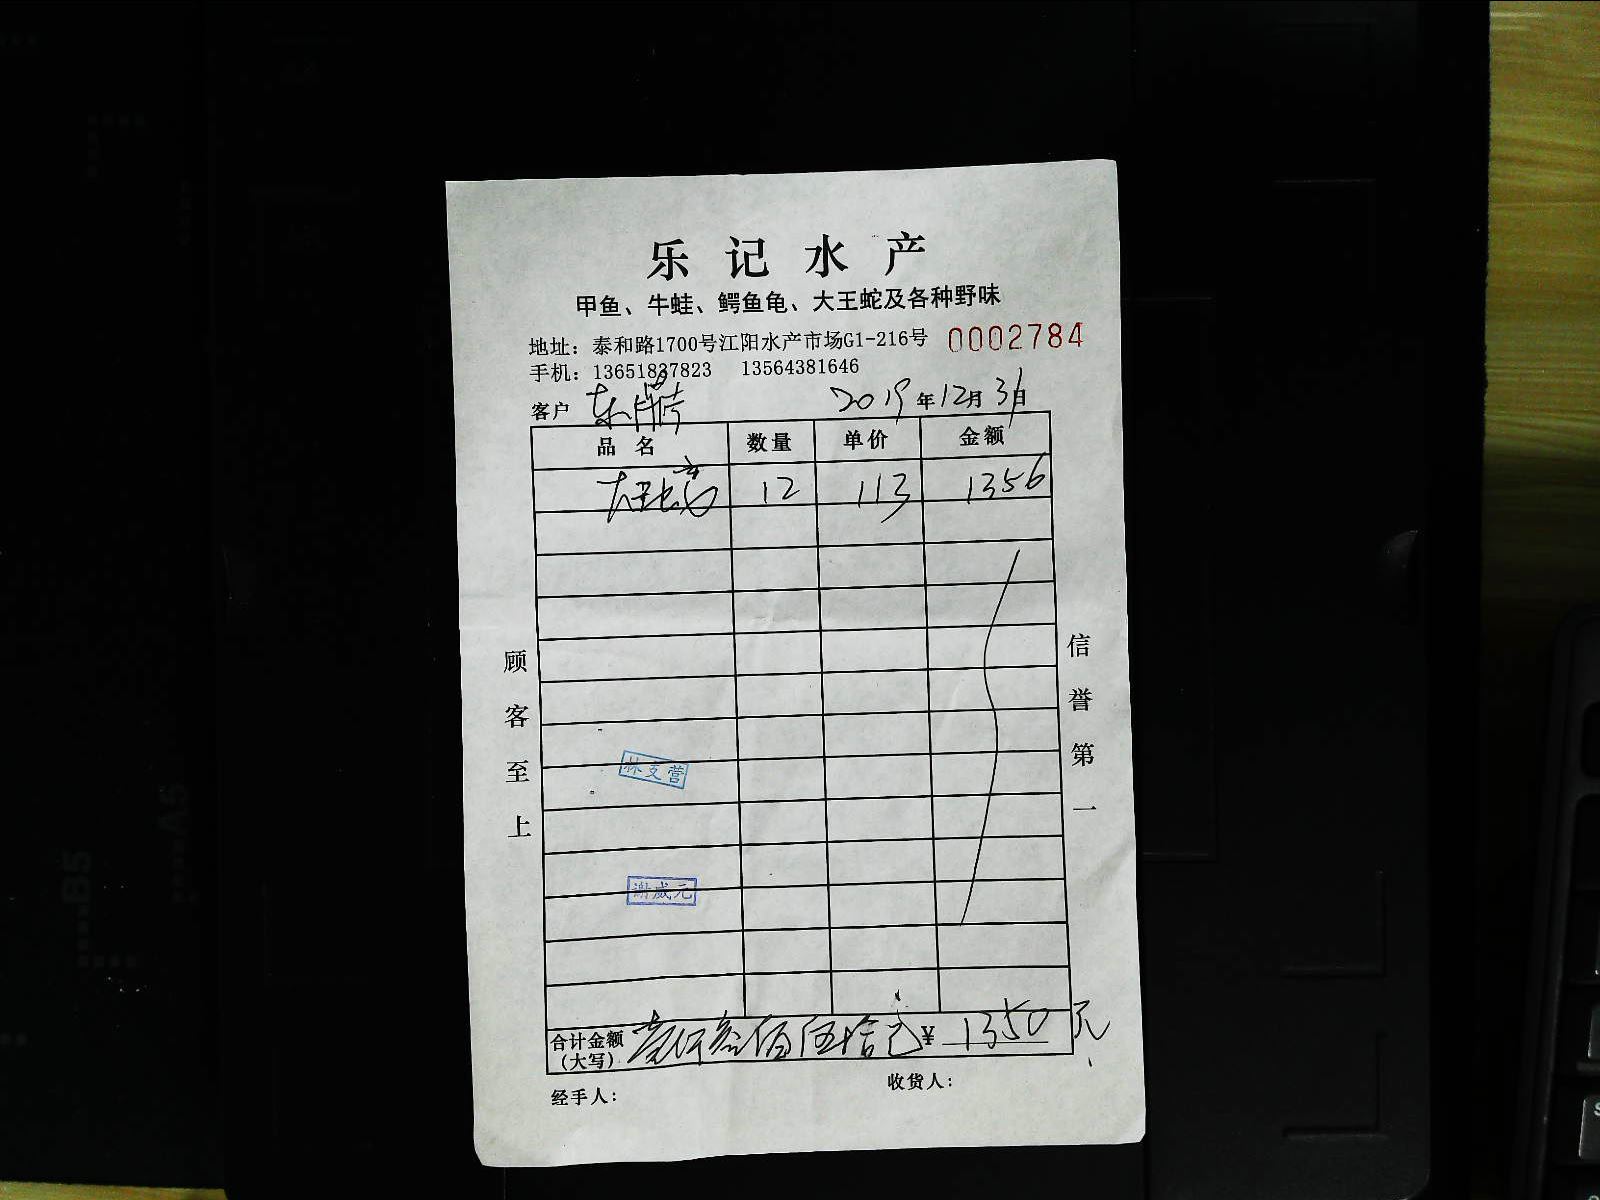 乐记水产
甲鱼、牛蛙、鳄鱼龟、大王蛇及各种野味
地址：泰和路1700号江阳水产市场G1-216号 0002784
手机：13651837823 13564381646
客户 2019年12月31日
品名 数量 单价 金额
大王蛇 12 113 1356
顾客至上
信誉第一
林支营
谢威元
合计金额(大写) 壹仟叁佰伍拾元 ¥1350元
经手人： 收货人：